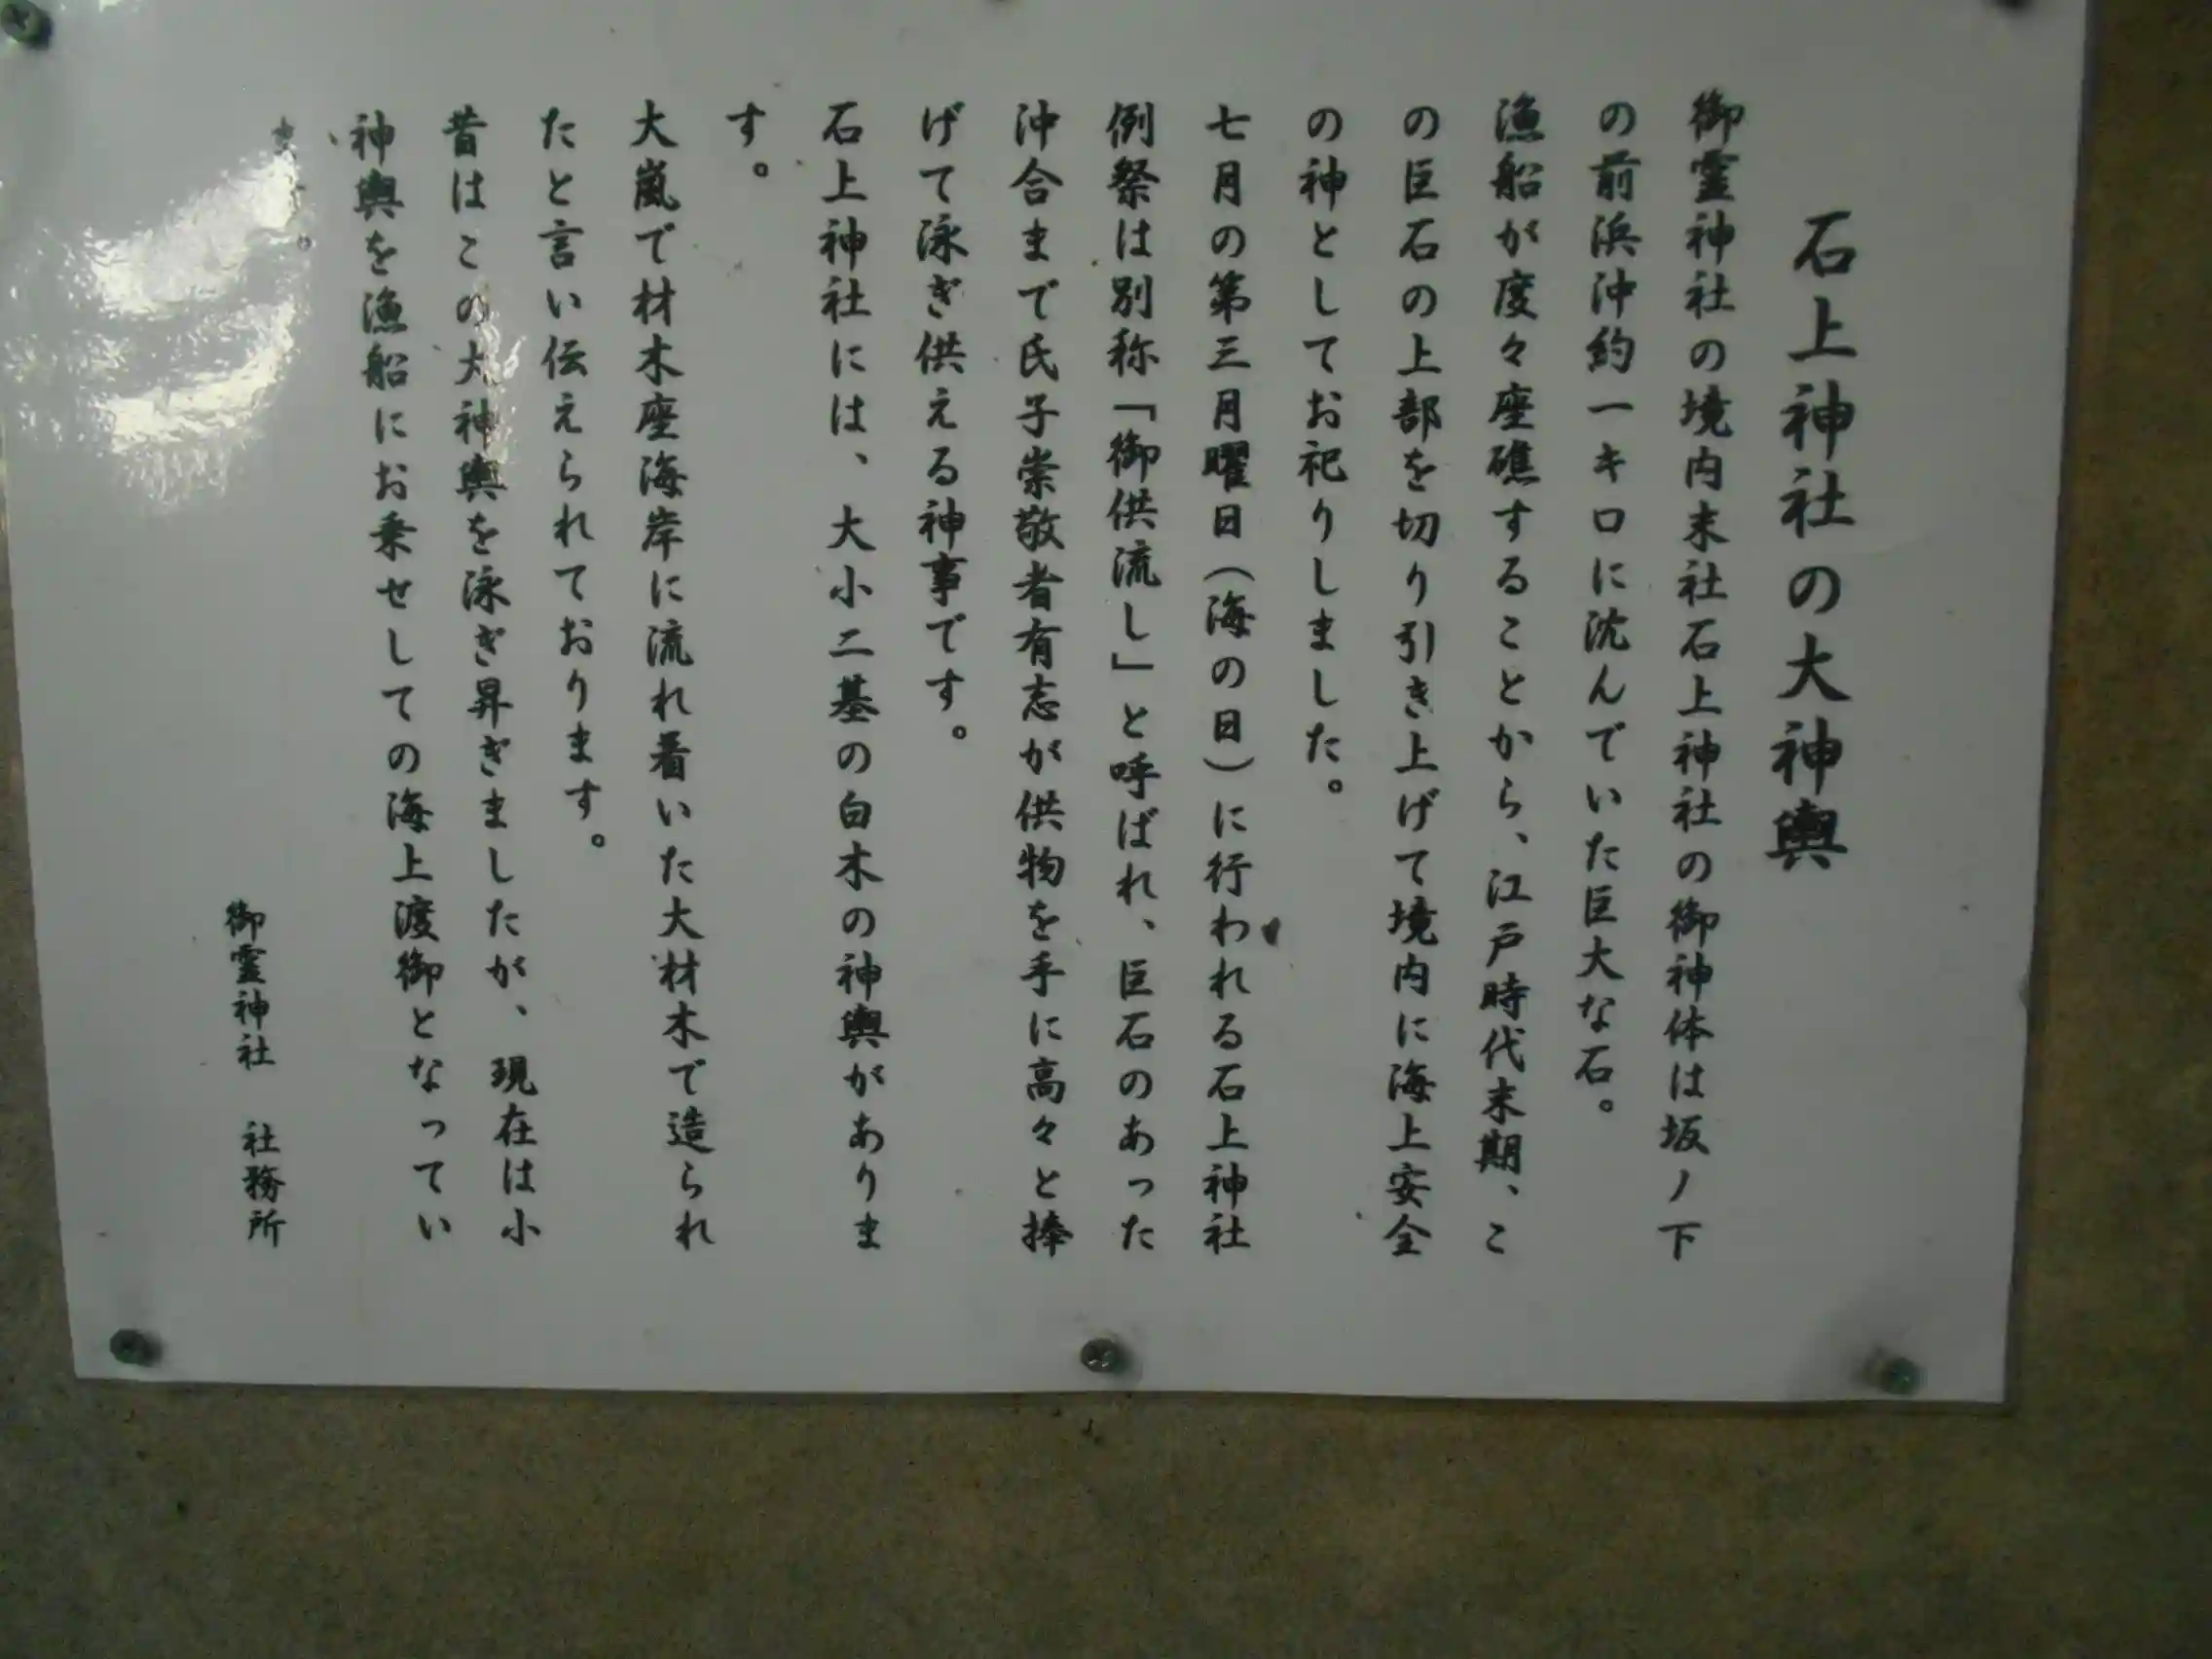 石上神社の大神輿
御霊神社の境内末社石上神社の御神体は坂ノ下
の前浜沖約一キロに沈んでいた巨大な石。
漁船が度々座礁することから、江戸時代末期、こ
の巨石の上部を切り引き上げて境内に海上安全
の神としてお祀りしました。
七月の第三月曜日(海の日)に行われる石上神社
例祭は別称「御供流し」と呼ばれ、巨石のあった
沖合まで氏子崇敬者有志が供物を手に高々と捧
げて泳ぎ供える神事です。
石上神社には、大小二基の白木の神輿がありま
す。
大嵐で材木座海岸に流れ着いた大材木で造られ
たと言い伝えられております。
昔はこの大神輿を泳ぎ昇ぎましたが、現在は小
神輿を漁船にお乗せしての海上渡御となってい
ます。
御霊神社 社務所